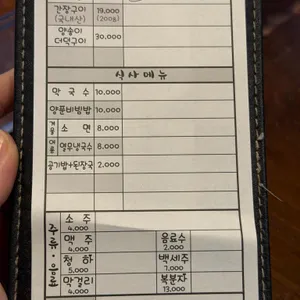 간장구이 19,000
(국내산) (200g)
양송이
더덕구이 30,000
식사메뉴
막국수 10,000
양푼비빔밥 10,000
겨울 소면 8,000
여름 열무냉국수 8,000
공기밥+된장국 2,000
주류·음료
소주 4,000
맥주 4,000 음료수 2,000
청하 5,000 백세주 7,000
막걸리 4,000 복분자 13,000